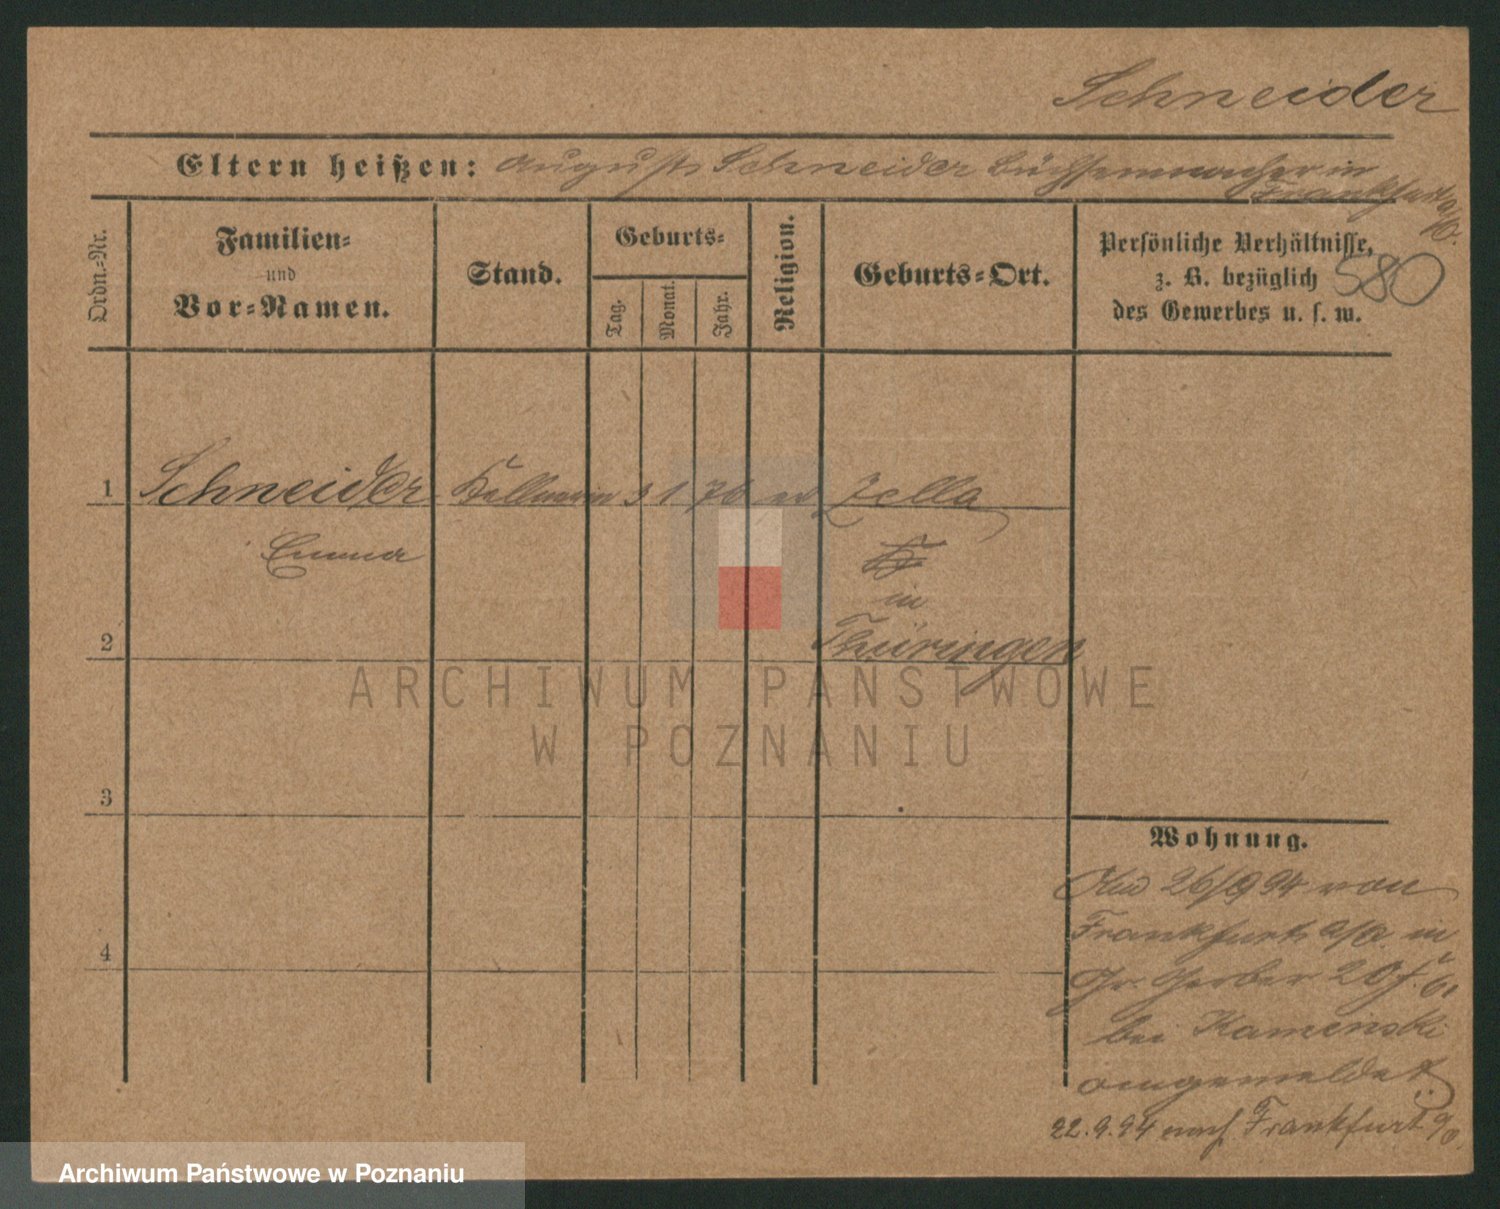 Schneider
Eltern heißen: August Schneider Büchsenmacher in
Frankfurt a/O.
Ordn.-Nr.
Familien-
und
Vor-Namen.
Stand.
Geburts-
Tag.
Monat.
Jahr.
Religion.
Geburts-Ort.
Persönliche Verhältnisse,
z. B. bezüglich
des Gewerbes u. s. w.
580
1 Schneider Kellnerin 3 1 76 ev Zella
Emma
in
2 Thüringen
3
4
Wohnung.
26/9 94 von
Frankfurt a/O. in
Gr. Gerber 20
bei Kaminski
angemeldet
22.9.94 nach Frankfurt a/O
ARCHIWUM PAŃSTWOWE
W POZNANIU
Archiwum Państwowe w Poznaniu